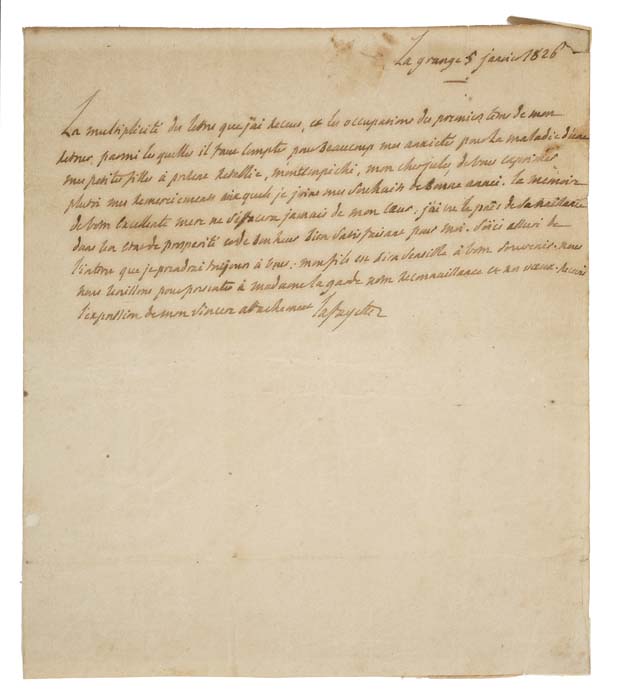 La grange 5 janvier 1826
La multiplicité des lettres que j'ai recues, et les occupations des premiers tems de mon
retour, parmi les quelles il faut compter pour beaucoup mes anxietés pour la maladie d'une
mes petites filles à présent rétablie, m'ont empeché, mon cher jules, de vous exprimer
plustot mes remerciemens aux quels je joins mes souhaits de bonne année. la mémoire
de votre excellente mere ne s'effacera jamais de mon cœur. j'ai vu le païs de sa naissance
dans un etat de prosperité et de bonheur bien satisfaisant pour moi. Soïés assuré de
l'intérêt que je prendrai toujours à vous. mon fils est bien sensible à votre souvenir. nous
nous réunissons pour presenter à madame la garde notre reconnaissance et nos vœux. Recevés
l'expression de mon sincere attachement Lafayette